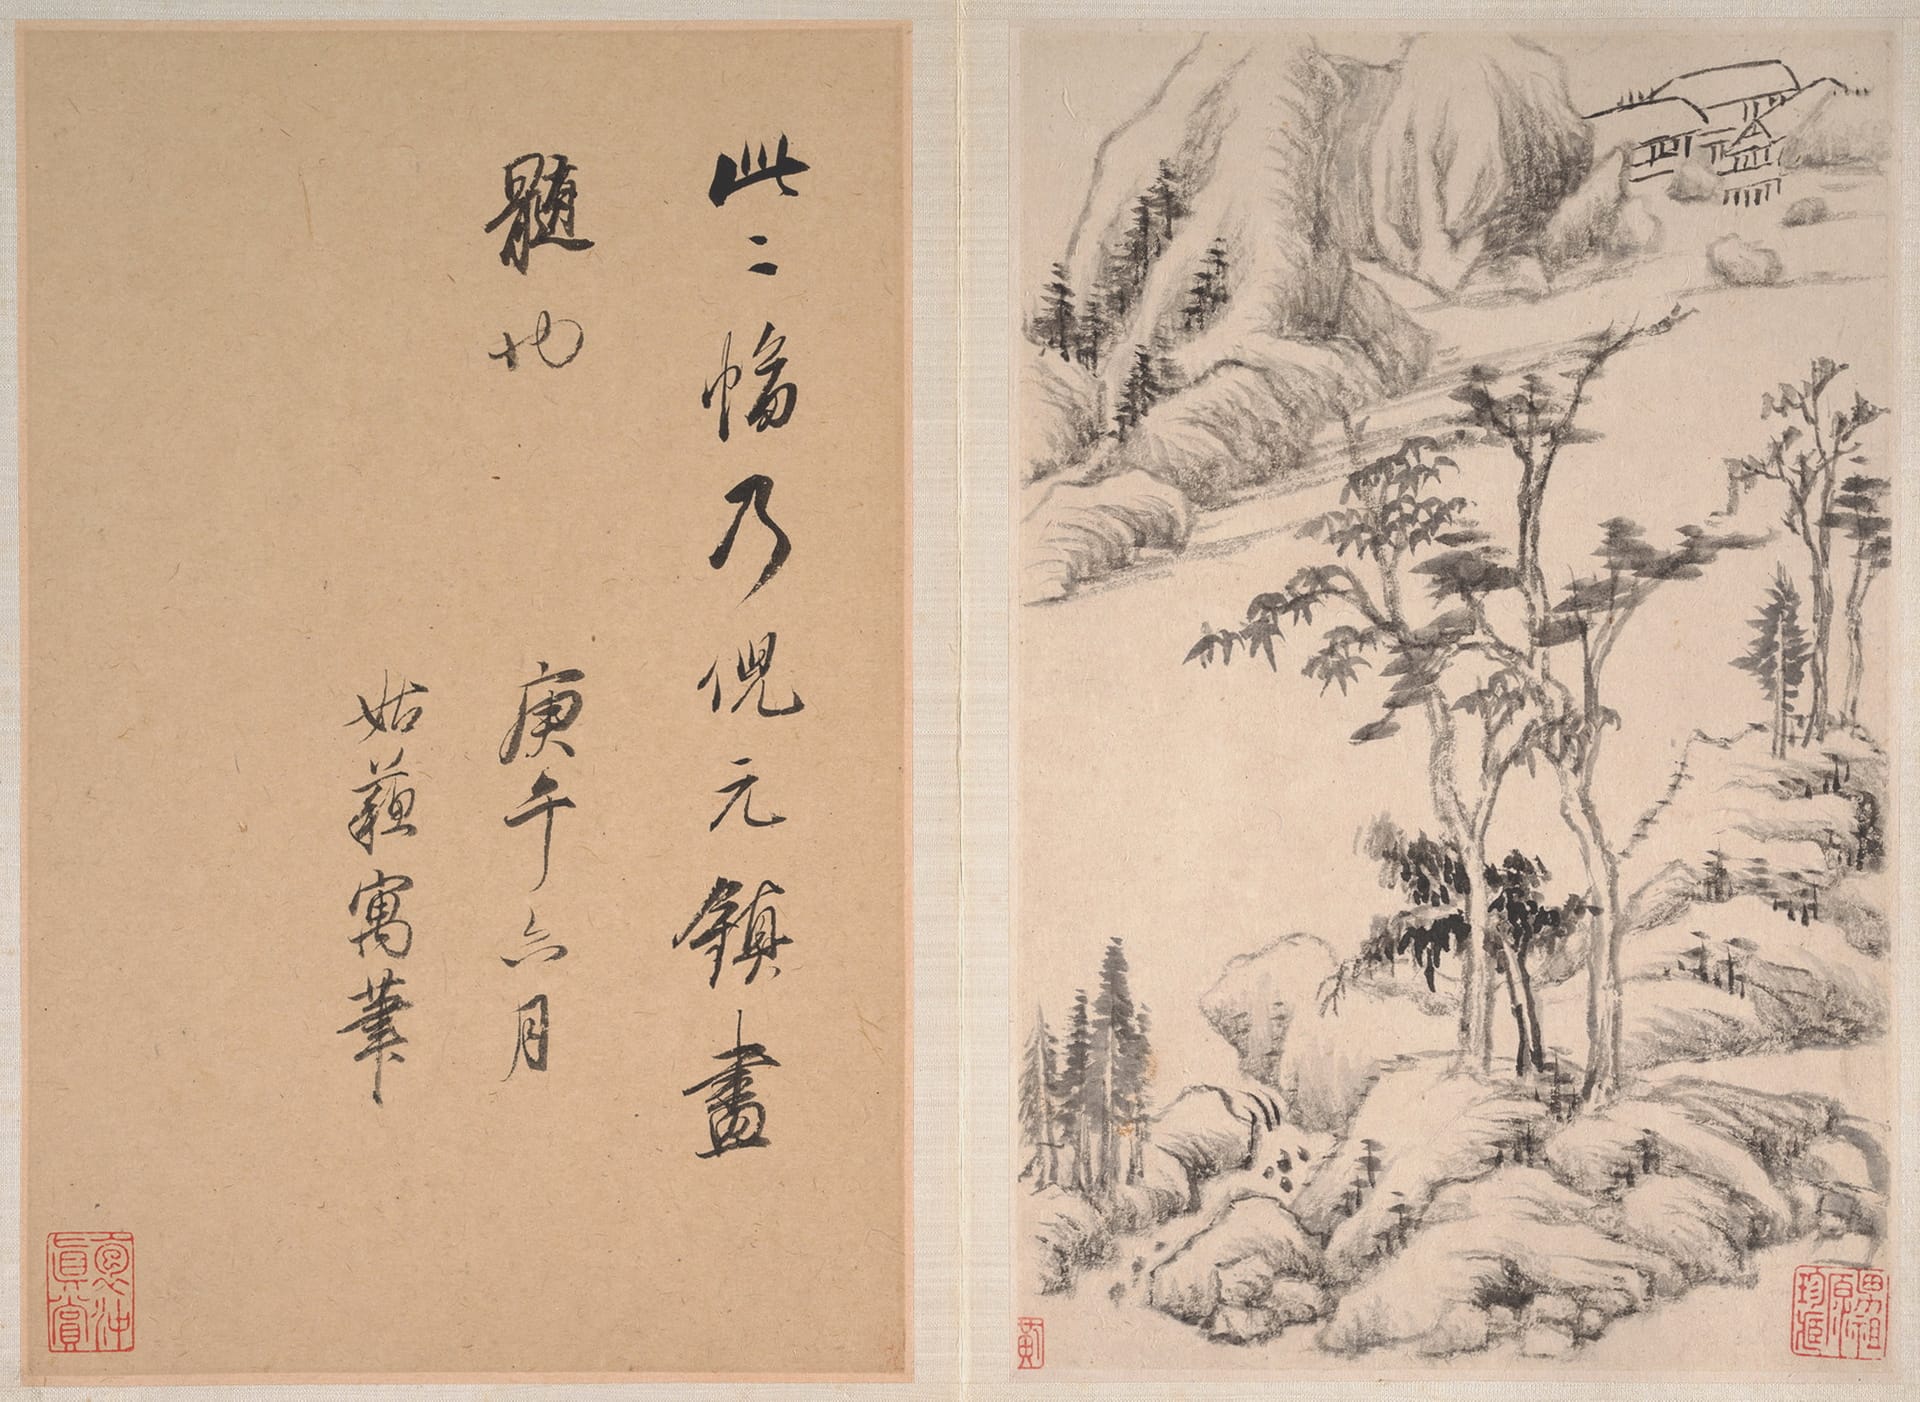 此二幅乃倪元鎮畫
髓也
庚午六月
姑蘇寓筆